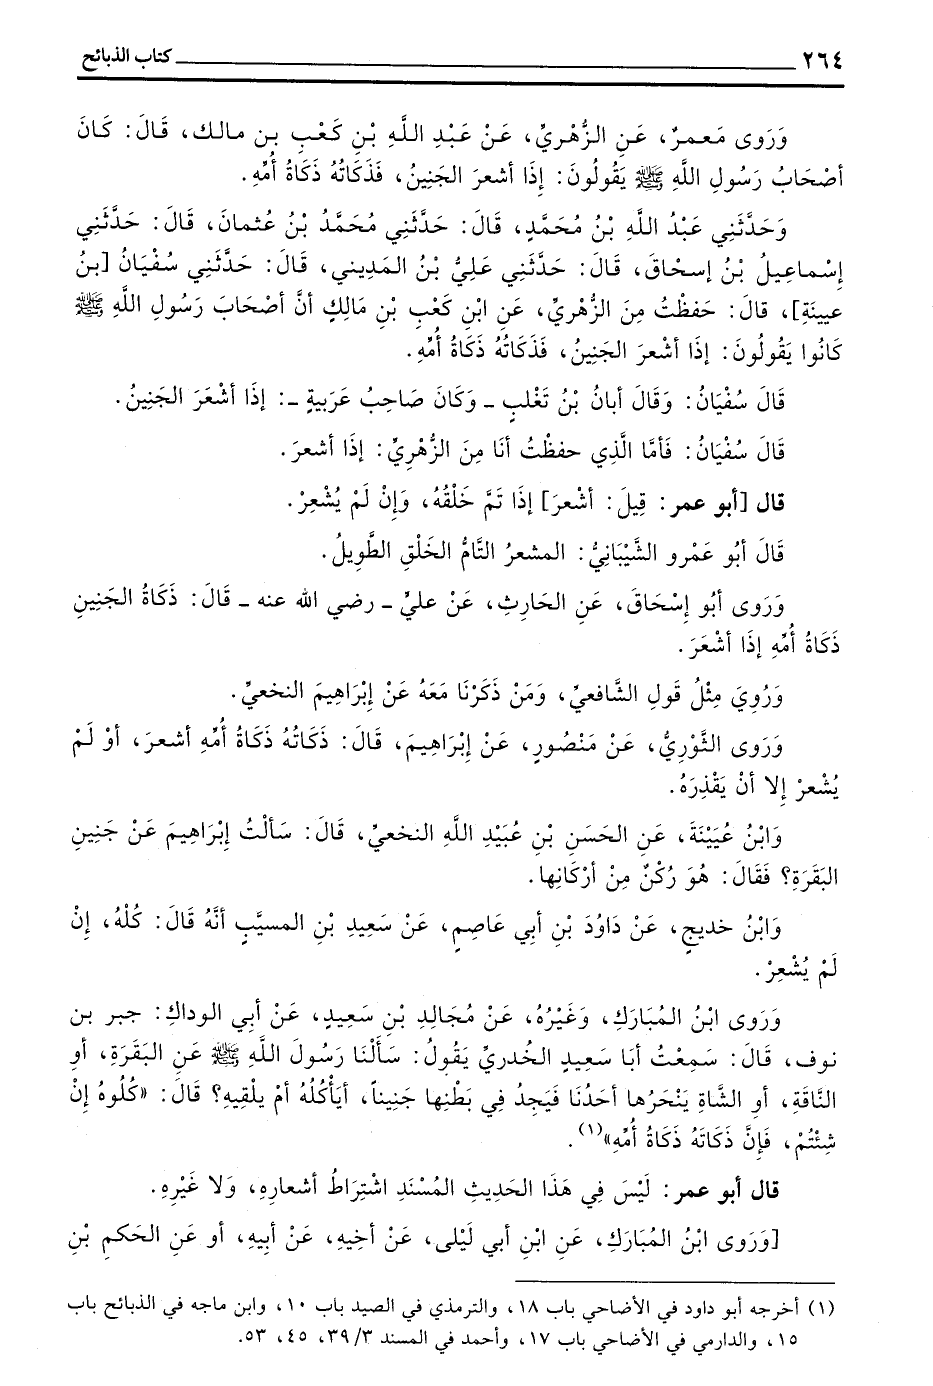 ٢٦٤ كتاب الذبائح
وَرَوى مَعمرٌ، عَنِ الزُّهْريِّ، عَنْ عَبْدِ اللَّهِ بْنِ كَعْبِ بن مالك، قَالَ: كَانَ
أصْحَابُ رَسُولِ اللَّهِ ﷺ يَقُولُونَ: إذَا أشعرَ الجَنِينُ، فَذَكَاتُهُ ذَكَاةُ أُمِّهِ.
وَحَدَّثَنِي عَبْدُ اللَّهِ بْنُ مُحَمَّدٍ، قَالَ: حَدَّثَنِي مُحَمَّدُ بْنُ عُثمانَ، قَالَ: حَدَّثَنِي
إسْماعيلُ بْنُ إسحاقَ، قَالَ: حَدَّثَنِي عَليُّ بْنُ المَدِيني، قَالَ: حَدَّثَنِي سُفْيَانُ [بنُ
عيينةِ]، قَالَ: حَفظْتُ مِنَ الزُّهْريِّ، عَنِ ابْنِ كَعْبِ بْنِ مَالِكٍ أنَّ أصْحَابَ رَسُولِ اللَّهِ ﷺ
كَانُوا يَقُولُونَ: إذَا أشْعرَ الجَنِينُ، فَذَكَاتُهُ ذَكَاةُ أُمِّهِ.
قَالَ سُفْيَانُ: وَقَالَ أبانُ بْنُ تَغْلبٍ ـ وَكَانَ صَاحِبُ عَرَبيةٍ ـ: إذَا أشْعَرَ الجَنِينُ.
قَالَ سُفْيَانُ: فَأمَّا الَّذِي حفظْتُ أنَا مِنَ الزُّهْرِيِّ: إذَا أشعرَ.
قال [أبو عمر: قِيلَ: أشْعرَ] إذَا تَمَّ خَلْقُهُ، وَإنْ لَمْ يُشْعِرْ.
قَالَ أبُو عَمْرو الشَّيْبَانِيُّ: المشعرُ التَّامُّ الخَلْقِ الطَّوِيلُ.
وَرَوى أبُو إسْحَاقَ، عَنِ الحَارِثِ، عَنْ عليٍّ ـ رضي الله عنه ـ قَالَ: ذَكَاةُ الجَنِينِ
ذَكَاةُ أُمِّهِ إذَا أشْعَرَ.
وَرُوِيَ مِثْلُ قَولِ الشَّافعيِّ، وَمَنْ ذَكَرْنَا مَعَهُ عَنْ إبْرَاهِيمَ النخعيِّ.
وَرَوى الثَّوْرِيُّ، عَنْ مَنْصُورٍ، عَنْ إبْرَاهِيمَ، قَالَ: ذَكَاتُهُ ذَكَاةُ أُمِّهِ أشعرَ، أوْ لَمْ
يُشْعرْ إلا أنْ يَقْذِرَهُ.
وَابْنُ عُيَيْنَةَ، عَنِ الحَسَنِ بْنِ عُبَيْدِ اللَّهِ النخعيِّ، قَالَ: سَألْتُ إبْرَاهِيمَ عَنْ جَنِينِ
البَقَرَةِ؟ فَقَالَ: هُوَ رُكْنٌ مِنْ أرْكَانِها.
وَابْنُ خديجٍ، عَنْ دَاوُدَ بْنِ أبِي عَاصِمٍ، عَنْ سَعِيدِ بْنِ المسيَّبِ أنَّهُ قَالَ: كُلْهُ، إنْ
لَمْ يُشْعِرْ.
وَرَوى ابْنُ المُبَارَكِ، وَغَيْرُهُ، عَنْ مُجَالِدِ بْنِ سَعِيدٍ، عَنْ أبِي الوداكِ: جبر بن
نوف، قَالَ: سَمِعْتُ أبَا سَعِيدٍ الخُدريِّ يَقُولُ: سَألْنَا رَسُولَ اللَّهِ ﷺ عَنِ البَقَرَةِ، أو
النَّاقَةِ، أوِ الشَّاةِ يَنْحَرُها أحَدُنَا فَيَجِدُ فِي بَطْنِها جَنيناً، أيَأْكُلُهُ أمْ يلْقِيهِ؟ قَالَ: «كُلُوهُ إنْ
شِئْتُمْ، فَإنَّ ذَكَاتَهُ ذَكَاةُ أُمِّهِ»(١).
قال أبو عمر: لَيْسَ فِي هَذَا الحَدِيثِ المُسْنَدِ اشْتِرَاطُ أشْعارِهِ، وَلا غَيْرِهِ.
[وَرَوى ابْنُ المُبَارَكِ، عَنِ ابْنِ أبي لَيْلى، عَنْ أخِيهِ، عَنْ أبِيهِ، أو عَنِ الحَكمِ بْنِ
(١) أخرجه أبو داود في الأضاحي باب ١٨، والترمذي في الصيد باب ١٠، وابن ماجه في الذبائح باب
١٥، والدارمي في الأضاحي باب ١٧، وأحمد في المسند ٣/ ٣٩، ٤٥، ٥٣.